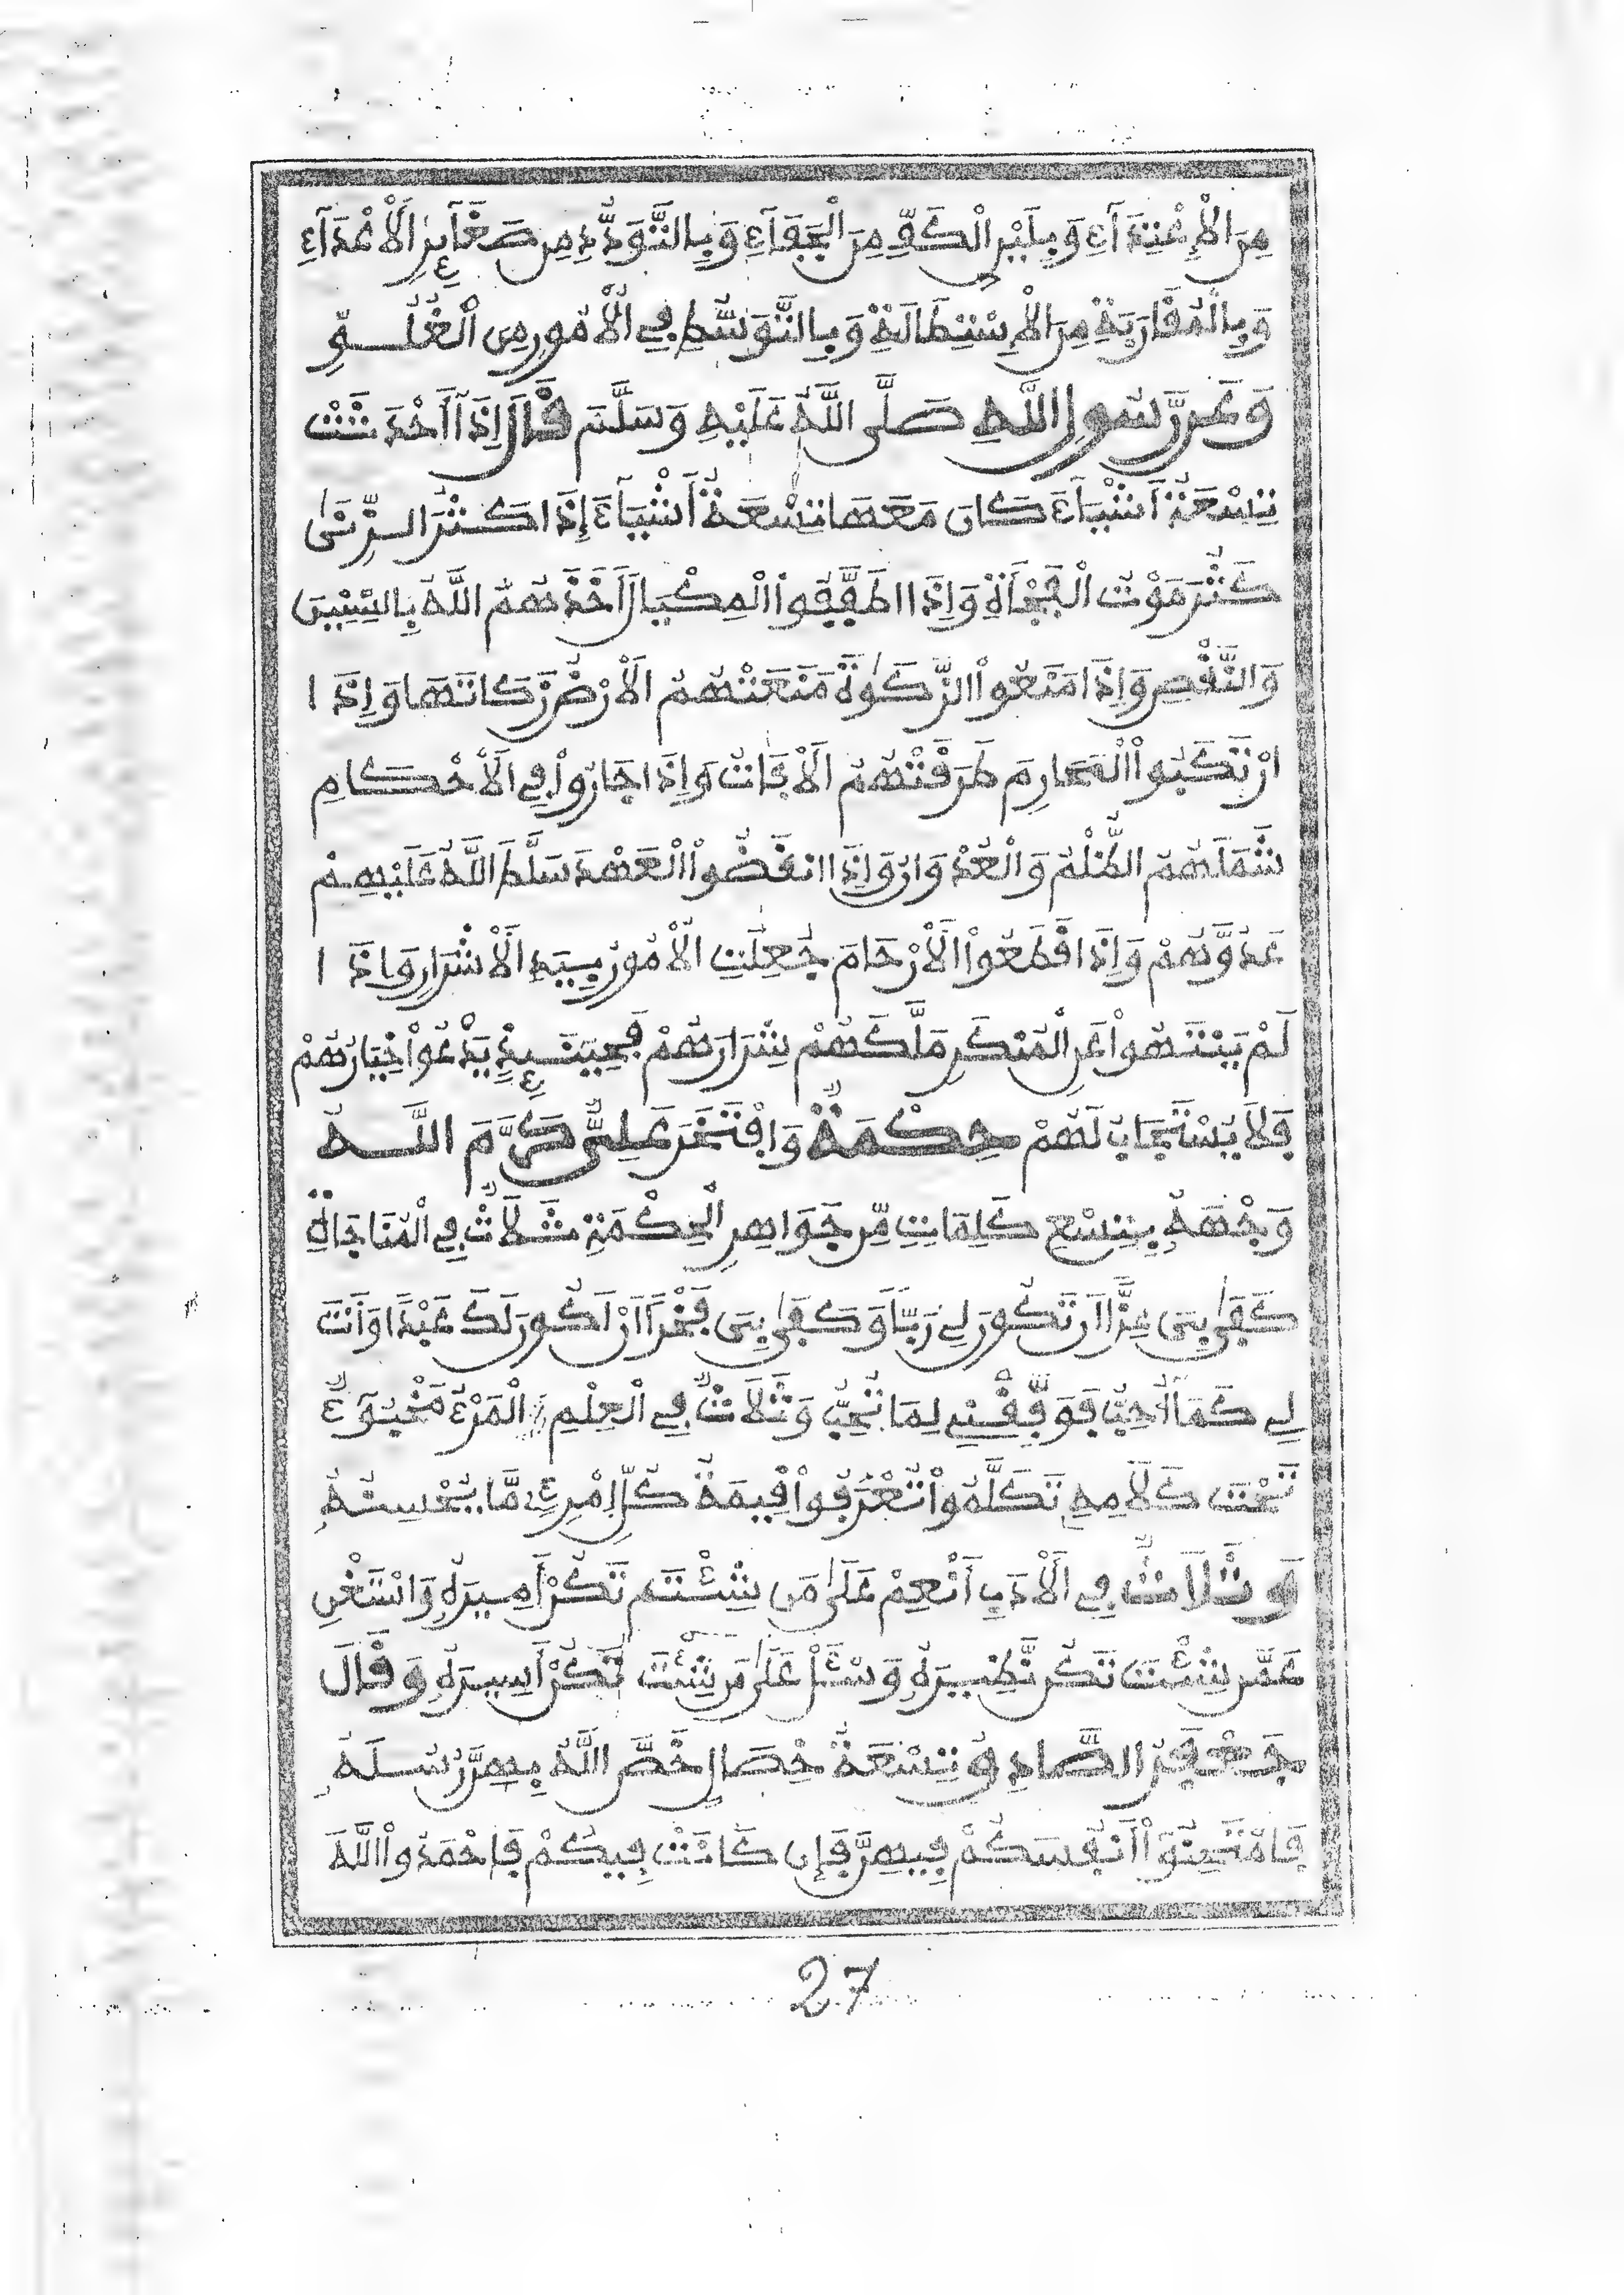 مِنَ الْإِعْتِدَآءِ وَبِلَيْنِ الْكَفِّ مِنَ الْجَفَآءِ وَبِالتَّوَدُّدِ مِن صَغَآئِرِ الْأَعْدَآءِ
وَبِالْمُقَارَبَةِ مِنَ الْإِسْتِطَالَةِ وَبِالتَّوَسُّطِ فِي الْأُمُورِ مِنَ الْغُلُـوِّ
وَعَن رَّسُولِ اللَّهِ صَلَّى اللَّهُ عَلَيْهِ وَسَلَّمَ قَالَ إِذَآ أَحْدَثَتْ
تِسْعَةُ أَشْيَآءَ كَانَ مَعَهَا تِسْعَةُ أَشْيَآءَ إِذَا كَثُرَ الزِّنَىٰ
كَثُرَ مَوْتُ الْفَجْأَةِ وَإِذَا اطَفَّفُواْ الْمِكْيَالَ أَخَذَهُمُ اللَّهُ بِالسِّنِينَ
وَالنَّقْصِ وَإِذَا مَنَعُواْ الزَّكَوٰةَ مَنَعَتْهُمُ الْأَرْضُ زَكَاتَهَا وَإِذَا
ارْتَكَبُواْ الْمَحَارِمَ طَرَقَتْهُمُ الْأَفَاتُ وَإِذَا جَارُواْ فِي الْأَحْكَامِ
شَمَلَهُمُ الظُّلْمُ وَالْعُدْوَانُ وَإِذَا انقَضُواْ الْعَهْدَ سَلَّطَ اللَّهُ عَلَيْهِمْ
عَدُوَّهُمْ وَإِذَا قَطَعُواْ الْأَرْحَامَ جُعِلَتِ الْأُمُورُ بِيَدِ الْأَشْرَارِ وَإِذَا
لَمْ يَنْتَهُواْ عَنِ الْمُنْكَرِ مَلَّكَهُمْ شِرَارَهُمْ فَحِينَـئِذٍ يَدْعُواْ خِيَارُهُمْ
فَلَا يُسْتَجَابُ لَهُمْ حِكْمَةٌ وَافْتَخَرَ عَلِيٌّ كَرَّمَ اللَّـهُ
وَجْهَهُ بِتِسْعِ كَلِمَاتٍ مِّن جَوَاهِرِ الْحِكْمَةِ ثَلَاثٌ فِي الْمُنَاجَاةِ
كَفَىٰ بِي عِزًّا أَن تَكُونَ لِي رَبًّا وَكَفَىٰ بِي فَخْرًا أَنْ أَكُونَ لَكَ عَبْدًا وَأَنتَ
لِي كَمَآ أُحِبُّ فَوَفِّقْنِي لِمَا تُحِبُّ وَثَلَاثٌ فِي الْعِلْمِ الْمَرْءُ مَخْبُوٓءٌ
تَحْتَ كَلَامِهِ تَكَلَّمُواْ تُعْرَفُواْ قِيمَةُ كُلِّ امْرِءٍ مَّا يُحْسِنُهُ
وَثَلَاثٌ فِي الْأَدَبِ أَنْعِمْ عَلَىٰ مَن شِئْتَ تَكُنْ أَمِيرَهُ وَاسْتَغْنِ
عَمَّن شِئْتَ تَكُن نَّظِيرَهُ وَسْئَلْ عَلَىٰ مَن شِئْتَ تَكُنْ أَسِيرَهُ وَقَالَ
جَعْفَرُ الصَّادِقُ تِسْعَةُ خِصَالٍ خَصَّ اللَّهُ بِهِنَّ رُسُلَهُ
فَامْتَحِنُوٓاْ أَنفُسَكُمْ فِيهِنَّ فَإِن كَانَتْ فِيكُمْ فَاحْمَدُواْ اللَّهَ
27